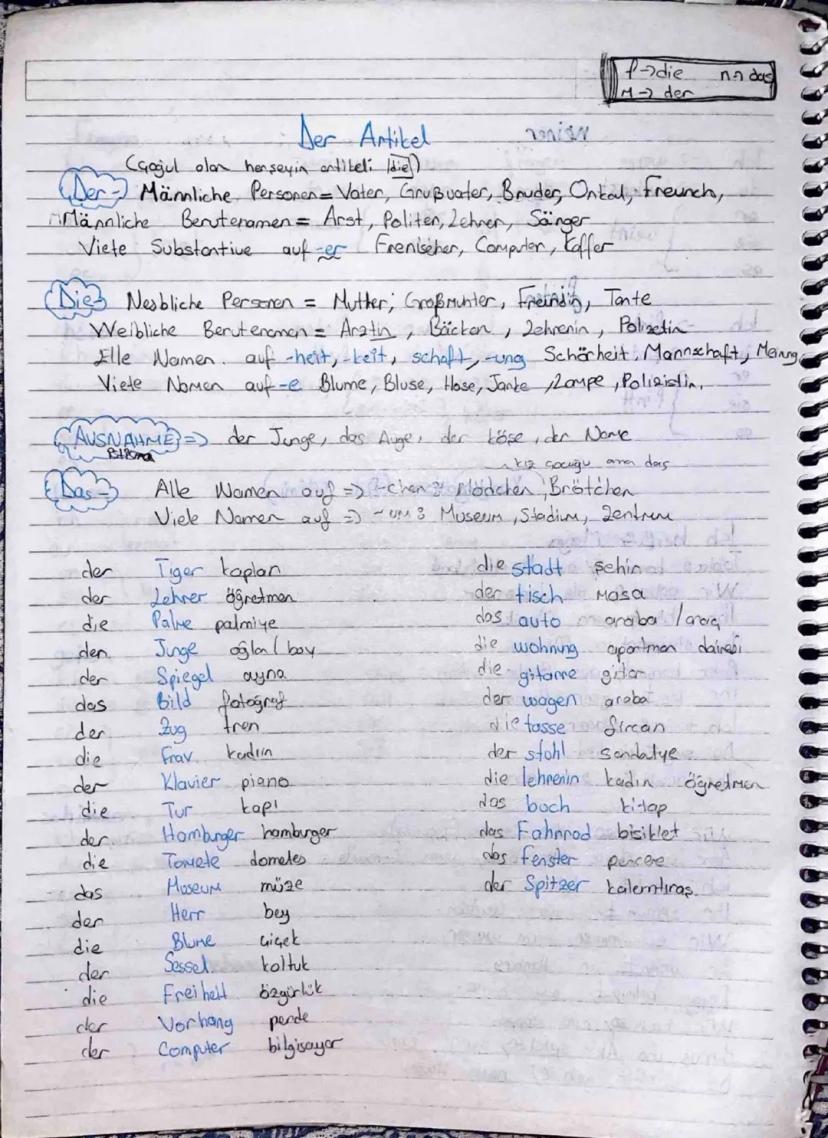 f→die n→das
M→ der
Der Artikel
(Çoğul olan herşeyin artikeli die)
Der→ Männliche Personen= Vater, Großvater, Bruder, Onkel, Freunch,
Männliche Berutenamen= Arst, Politen, Lehrer, Sänger
Viete Substantive auf -er Frenischer, Computer, Koffer
Die→ Nesbliche Personen = Mutter, Großmutter, Freundin, Tante
Weibliche Berutenamen= Arztin, Böcken, Lehrenin, Polisetin
Elle Namen auf -heit, -keit, schaft, -ung Schörheit, Mannschaft, Meinung
Viete Nomen auf -e Blume, Bluse, Hose, Janke, Lampe, Polizistin,
AUSNAHME => der Junge, das Auge, der köse, der Name
istisna
kız çocuğu ama das
Das→ Alle Namen auf => -chen: Mädchen, Brötchen
Viele Namen auf => -um: Museum, Stadium, Zentrum
der Tiger kaplan die stadt şehir
der Lehrer öğretmen der tisch masa
die Palme palmiye das auto araba / araç
der Junge oğlan / bay die wohnung apartman dairesi
der Spiegel ayna die gitarre gitar
das Bild fotoğraf der wagen araba
der Zug tren die tasse fincan
die Frav kadın der stohl sandalye
der Klavier piano die lehrenin kadın öğretmen
die Tur kapı das buch kitap
der Hamburger hamburger das Fahrrad bisiklet
die Tomete domates das fenster pencere
das Museum müze der Spitzer kalemtıraş
der Herr bey
die Blume çiçek
der Sessel koltuk
die Freiheit özgürlük
der Vorhang perde
der Computer bilgisayar